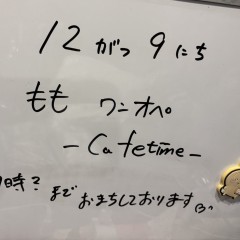 12がつ9にち
もも ワンオペ
-Cafetime-
時?まで おまちしております